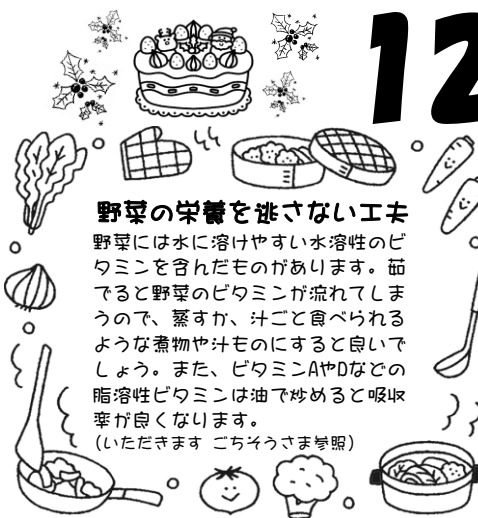 12
野菜の栄養を逃さない工夫
野菜には水に溶けやすい水溶性のビ
タミンを含んだものがあります。茹
でると野菜のビタミンが流れてしま
うので、蒸すか、汁ごと食べられる
ような煮物や汁ものにすると良いで
しょう。また、ビタミンAやDなどの
脂溶性ビタミンは油で炒めると吸収
率が良くなります。
(いただきます ごちそうさま参照)